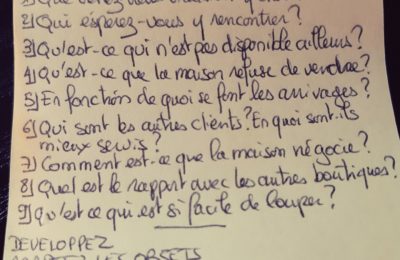 2) Qui espérez-vous y rencontrer?
3) Qu'est-ce qui n'est pas disponible ailleurs?
4) Qu'est-ce que la maison refuse de vendre?
5) En fonction de quoi se font les arrivages?
6) Qui sont les autres clients? En quoi sont-ils
mieux servis?
7) Comment est-ce que la maison négocie?
8) Quel est le rapport avec les autres boutiques?
9) Qu'est ce qui est si facile de louper?
DEVELOPPEZ
LES OBJETS